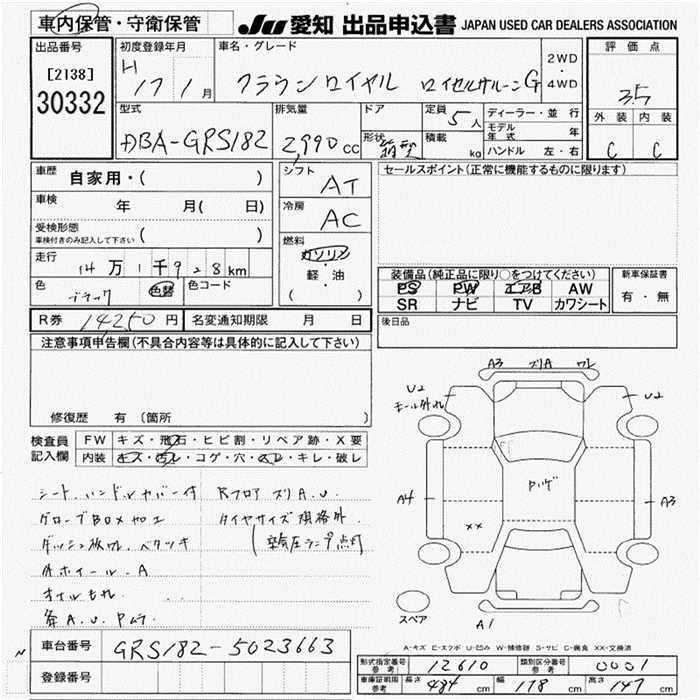 車内保管・守衛保管 JU 愛知 出品申込書 JAPAN USED CAR DEALERS ASSOCIATION
出品番号 初度登録年月 車名・グレード 2WD ・ 4WD 評価点
[2138] H 17 1月 クラウンロイヤル ロイヤルサルーンG 3.5
30332 外装 内装
C C
型式 排気量 ドア 定員 5人 ディーラー・並行
DBA-GRS182 2,990cc 形状 箱型 積載 kg モデル年式 年
ハンドル 左・右
車歴 自家用・( ) シフト AT セールスポイント(正常に機能するものに限ります)
車検 年 月( 日) 冷房 AC
受検形態 ( )
車検付きのみ記入して下さい
燃料 ガソリン
軽・油
( )
走行 14万1千928km
色 ブラック 色替 色コード
装備品(純正品に限り○をつけてください) 新車保証書
PS PW エアB AW 有・無
SR ナビ TV カワシート
R券 14250円 名変通知期限 月 日 後日品
注意事項申告欄(不具合内容等は具体的に記入して下さい)
修復歴 有(箇所 )
検査員記入欄 FW キズ・飛石・ヒビ割・リペア跡・X要
内装 キズ・汚レ・コゲ・穴・スレ・キレ・破レ
シート、ハンドルカバー付 RフロアズリA.U.
グローブBOX加工 タイヤサイズ規格外
ダッシュ板ワレ、ベタツキ 空気圧ランプ点灯
外ホイール、A
オイルもれ
A3 ズリA ワレ
U2 U2
モール外れ
A4 A3
××
A1
スペア
A-キズ E-エクボ U-凹み W-補修跡 S-サビ C-腐食 XX-交換済
車台番号 GRS182-5023663
登録番号
形式指定番号 参考 12610 類別区分番号 参考 0001
車庫証明用 参考 長さ 484cm 幅 178cm 高さ 147cm